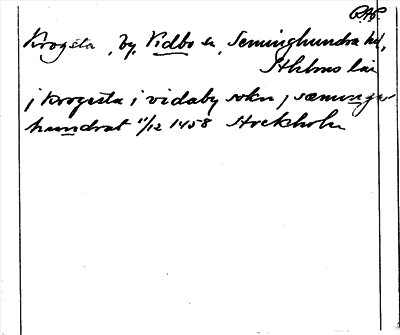 P.A.P.
Krogsta, by, Vidbo sn, Seminghundra hd,
Sthlms län
j krogista i vidaby sokn j sæmunga-
hundrat 11/12 1458 Stockholm